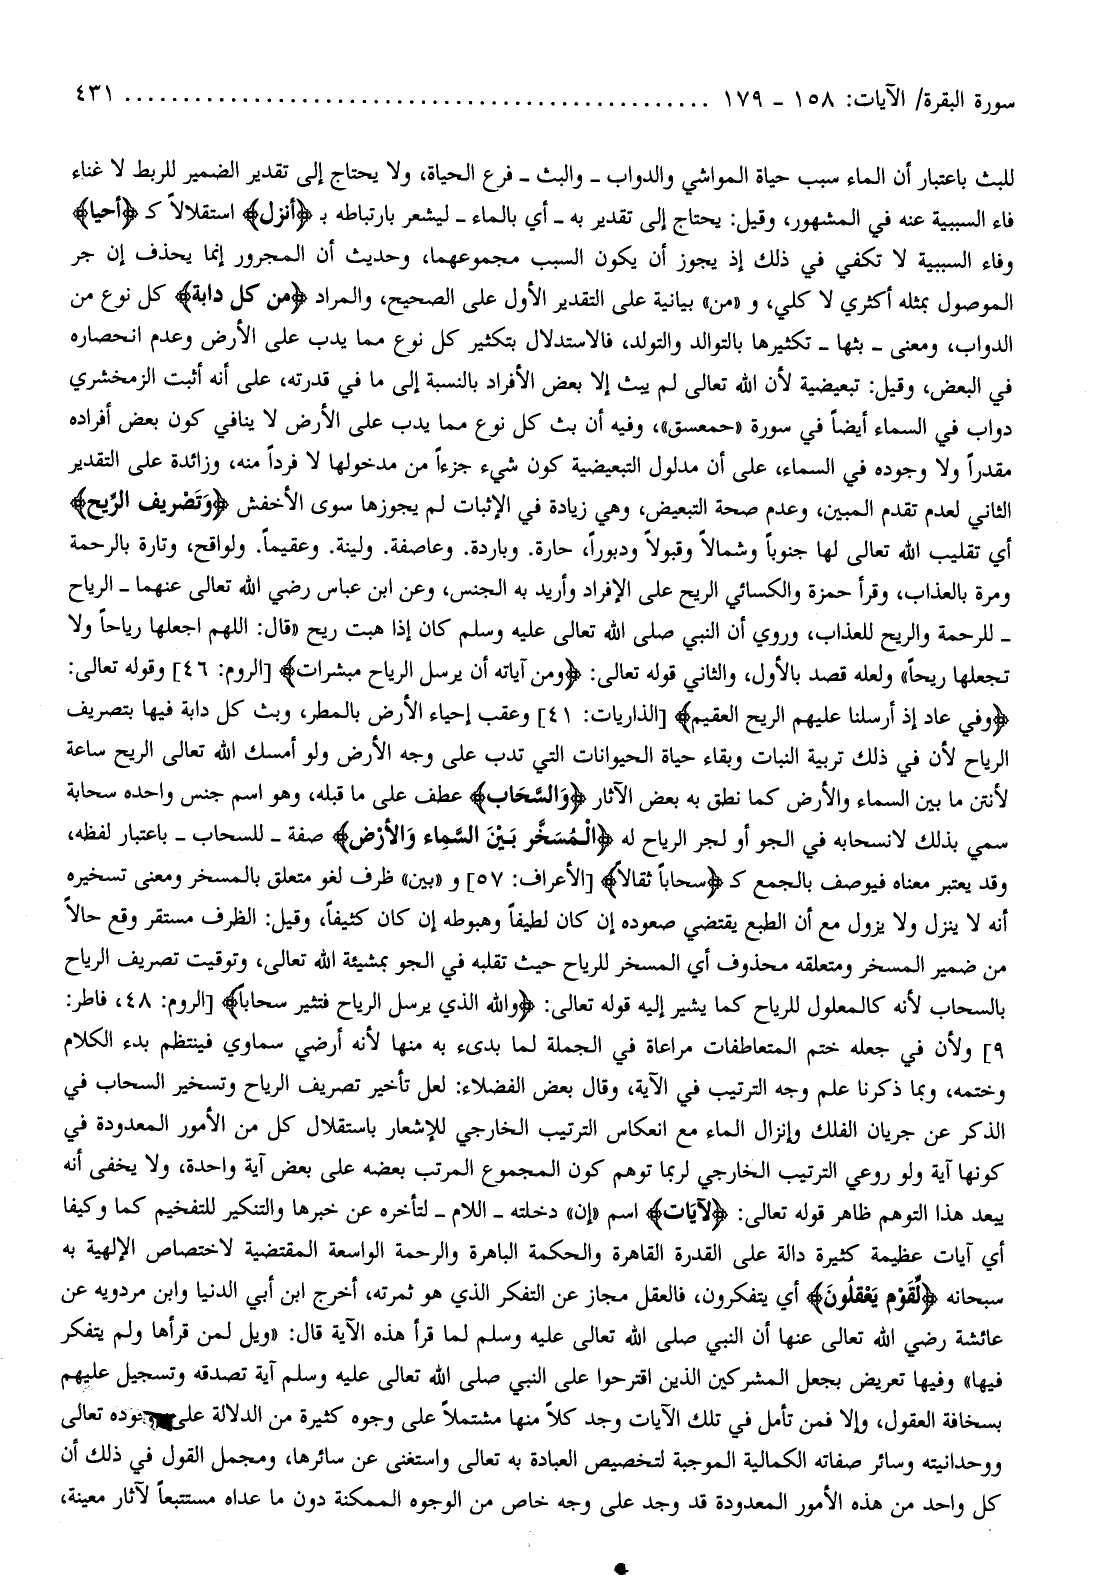 سورة البقرة/ الآيات: ١٥٨ ـ ١٧٩ ................................................ ٤٣١
للبث باعتبار أن الماء سبب حياة المواشي والدواب ـ والبث ـ فرع الحياة، ولا يحتاج إلى تقدير الضمير للربط لا غناء
فاء السببية عنه في المشهور، وقيل: يحتاج إلى تقدير به ـ أي بالماء ـ ليشعر بارتباطه بـ ﴿أنزل﴾ استقلالاً كـ ﴿أحيا﴾
وفاء السببية لا تكفي في ذلك إذ يجوز أن يكون السبب مجموعهما، وحديث أن المجرور إنما يحذف إن جر
الموصول بمثله أكثري لا كلي، و «من» بيانية على التقدير الأول على الصحيح، والمراد ﴿من كل دابة﴾ كل نوع من
الدواب، ومعنى ـ بثها ـ تكثيرها بالتوالد والتولد، فالاستدلال بتكثير كل نوع مما يدب على الأرض وعدم انحصاره
في البعض، وقيل: تبعيضية لأن الله تعالى لم يبث إلا بعض الأفراد بالنسبة إلى ما في قدرته، على أنه أثبت الزمخشري
دواب في السماء أيضاً في سورة «حمعسق»، وفيه أن بث كل نوع مما يدب على الأرض لا ينافي كون بعض أفراده
مقدراً ولا وجوده في السماء، على أن مدلول التبعيضية كون شيء جزءاً من مدخولها لا فرداً منه، وزائدة على التقدير
الثاني لعدم تقدم المبين، وعدم صحة التبعيض، وهي زيادة في الإثبات لم يجوزها سوى الأخفش ﴿وَتَصْريف الرِّيح﴾
أي تقليب الله تعالى لها جنوباً وشمالاً وقبولاً ودبوراً، حارة. وباردة. وعاصفة. ولينة. وعقيماً. ولواقح، وتارة بالرحمة
ومرة بالعذاب، وقرأ حمزة والكسائي الريح على الإفراد وأريد به الجنس، وعن ابن عباس رضي الله تعالى عنهما ـ الرياح
ـ للرحمة والريح للعذاب، وروي أن النبي صلى الله تعالى عليه وسلم كان إذا هبت ريح «قال: اللهم اجعلها رياحاً ولا
تجعلها ريحاً» ولعله قصد بالأول، والثاني قوله تعالى: ﴿ومن آياته أن يرسل الرياح مبشرات﴾ [الروم: ٤٦] وقوله تعالى:
﴿وفي عاد إذ أرسلنا عليهم الريح العقيم﴾ [الذاريات: ٤١] وعقب إحياء الأرض بالمطر، وبث كل دابة فيها بتصريف
الرياح لأن في ذلك تربية النبات وبقاء حياة الحيوانات التي تدب على وجه الأرض ولو أمسك الله تعالى الريح ساعة
لأنتن ما بين السماء والأرض كما نطق به بعض الآثار ﴿وَالسَّحَاب﴾ عطف على ما قبله، وهو اسم جنس واحده سحابة
سمي بذلك لانسحابه في الجو أو لجر الرياح له ﴿الْمُسَخَّر بَيْنَ السَّمِاء وَالأرْض﴾ صفة ـ للسحاب ـ باعتبار لفظه،
وقد يعتبر معناه فيوصف بالجمع كـ ﴿سحاباً ثقالاً﴾ [الأعراف: ٥٧] و «بين» ظرف لغو متعلق بالمسخر ومعنى تسخيره
أنه لا ينزل ولا يزول مع أن الطبع يقتضي صعوده إن كان لطيفاً وهبوطه إن كان كثيفاً، وقيل: الظرف مستقر وقع حالاً
من ضمير المسخر ومتعلقه محذوف أي المسخر للرياح حيث تقلبه في الجو بمشيئة الله تعالى، وتوقيت تصريف الرياح
بالسحاب لأنه كالمعلول للرياح كما يشير إليه قوله تعالى: ﴿والله الذي يرسل الرياح فتثير سحاباً﴾ [الروم: ٤٨، فاطر:
٩] ولأن في جعله ختم المتعاطفات مراعاة في الجملة لما بدىء به منها لأنه أرضي سماوي فينتظم بدء الكلام
وختمه، وبما ذكرنا علم وجه الترتيب في الآية، وقال بعض الفضلاء: لعل تأخير تصريف الرياح وتسخير السحاب في
الذكر عن جريان الفلك وإنزال الماء مع انعكاس الترتيب الخارجي للإشعار باستقلال كل من الأمور المعدودة في
كونها آية ولو روعي الترتيب الخارجي لربما توهم كون المجموع المرتب بعضه على بعض آية واحدة، ولا يخفى أنه
يبعد هذا التوهم ظاهر قوله تعالى: ﴿لآيَات﴾ اسم «إن» دخلته ـ اللام ـ لتأخره عن خبرها والتنكير للتفخيم كما وكيفا
أي آيات عظيمة كثيرة دالة على القدرة القاهرة والحكمة الباهرة والرحمة الواسعة المقتضية لاختصاص الإلهية به
سبحانه ﴿لِّقَوْم يَعْقلُونَ﴾ أي يتفكرون، فالعقل مجاز عن التفكر الذي هو ثمرته، أخرج ابن أبي الدنيا وابن مردويه عن
عائشة رضي الله تعالى عنها أن النبي صلى الله تعالى عليه وسلم لما قرأ هذه الآية قال: «ويل لمن قرأها ولم يتفكر
فيها» وفيها تعريض بجعل المشركين الذين اقترحوا على النبي صلى الله تعالى عليه وسلم آية تصدقه وتسجيل عليهم
بسخافة العقول، وإلا فمن تأمل في تلك الآيات وجد كلاً منها مشتملاً على وجوه كثيرة من الدلالة على تعالى
ووحدانيته وسائر صفاته الكمالية الموجبة لتخصيص العبادة به تعالى واستغنى عن سائرها، ومجمل القول في ذلك أن
كل واحد من هذه الأمور المعدودة قد وجد على وجه خاص من الوجوه الممكنة دون ما عداه مستتبعاً لآثار معينة،